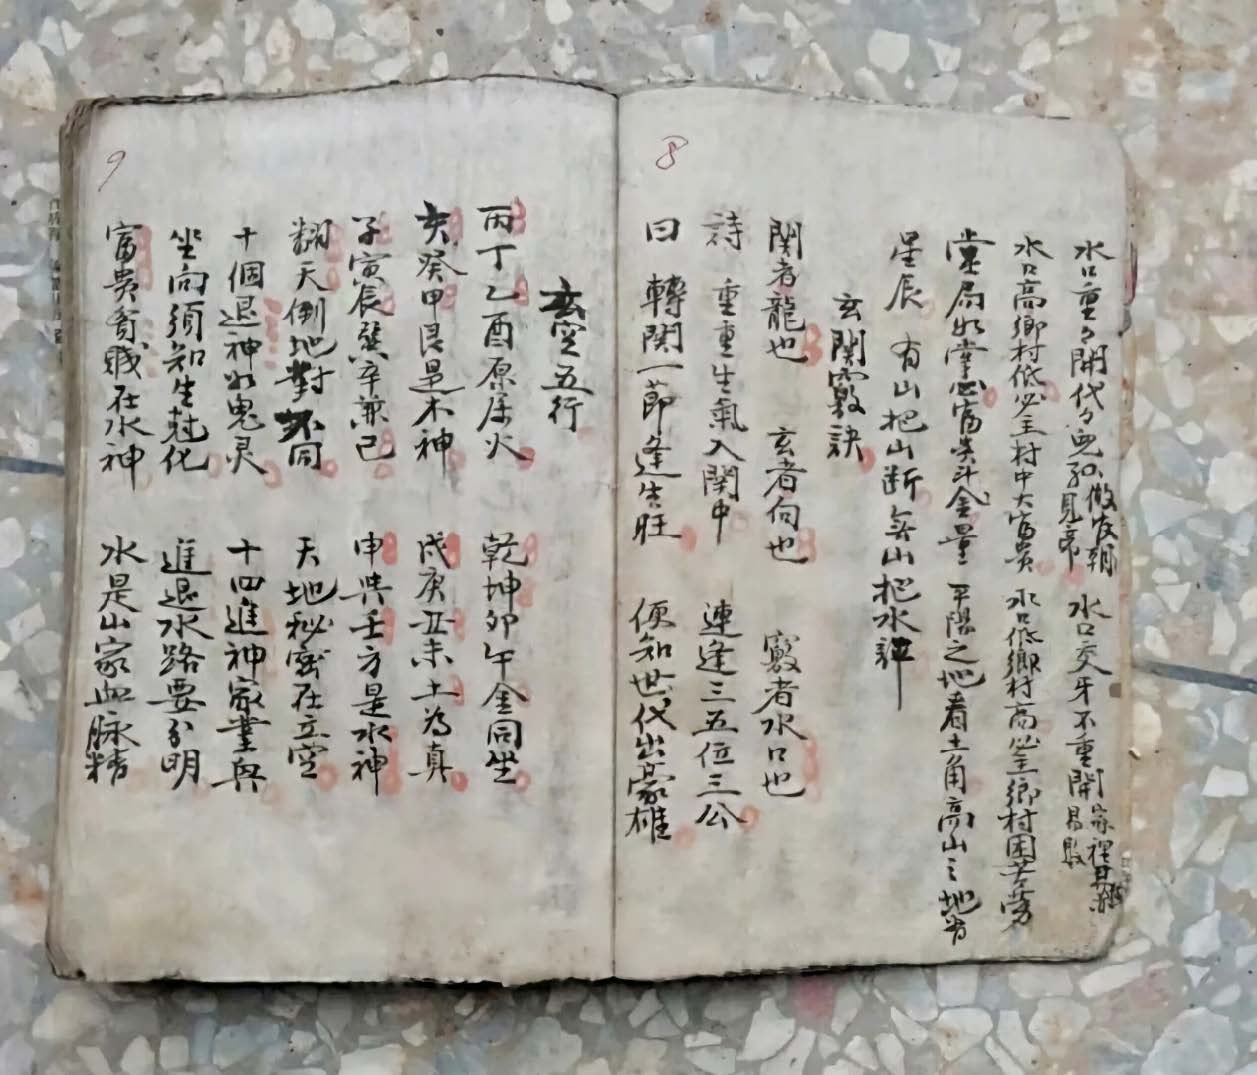 8
水口重々開代々兒孫做官朝見帝 水口交牙不重開家裡
易敗
水口高鄉村低必主村中大富貴 水口低鄉村高必主鄉村困苦勞
堂局如掌心富貴斗金量 平陽之地看土角高山之地看
星辰 有山把山断無山把水評
玄関竅訣
関者龍也 玄者向也 竅者水口也
詩 重重生氣入関中 連逢三五位三公
曰 轉関一節逢生旺 便知世代出豪雄
9
玄空五行
丙丁乙酉原屬火 乾坤卯午金同坐
亥癸甲艮是木神 戌庚丑未土為真
子寅辰巽辛兼己 申與壬方是水神
翻天倒地對不同 天地秘密在玄空
十個退神如鬼灵 十四進神家業興
坐向須知生尅化 進退水路要分明
富貴貧賤在水神 水是山家血脉精